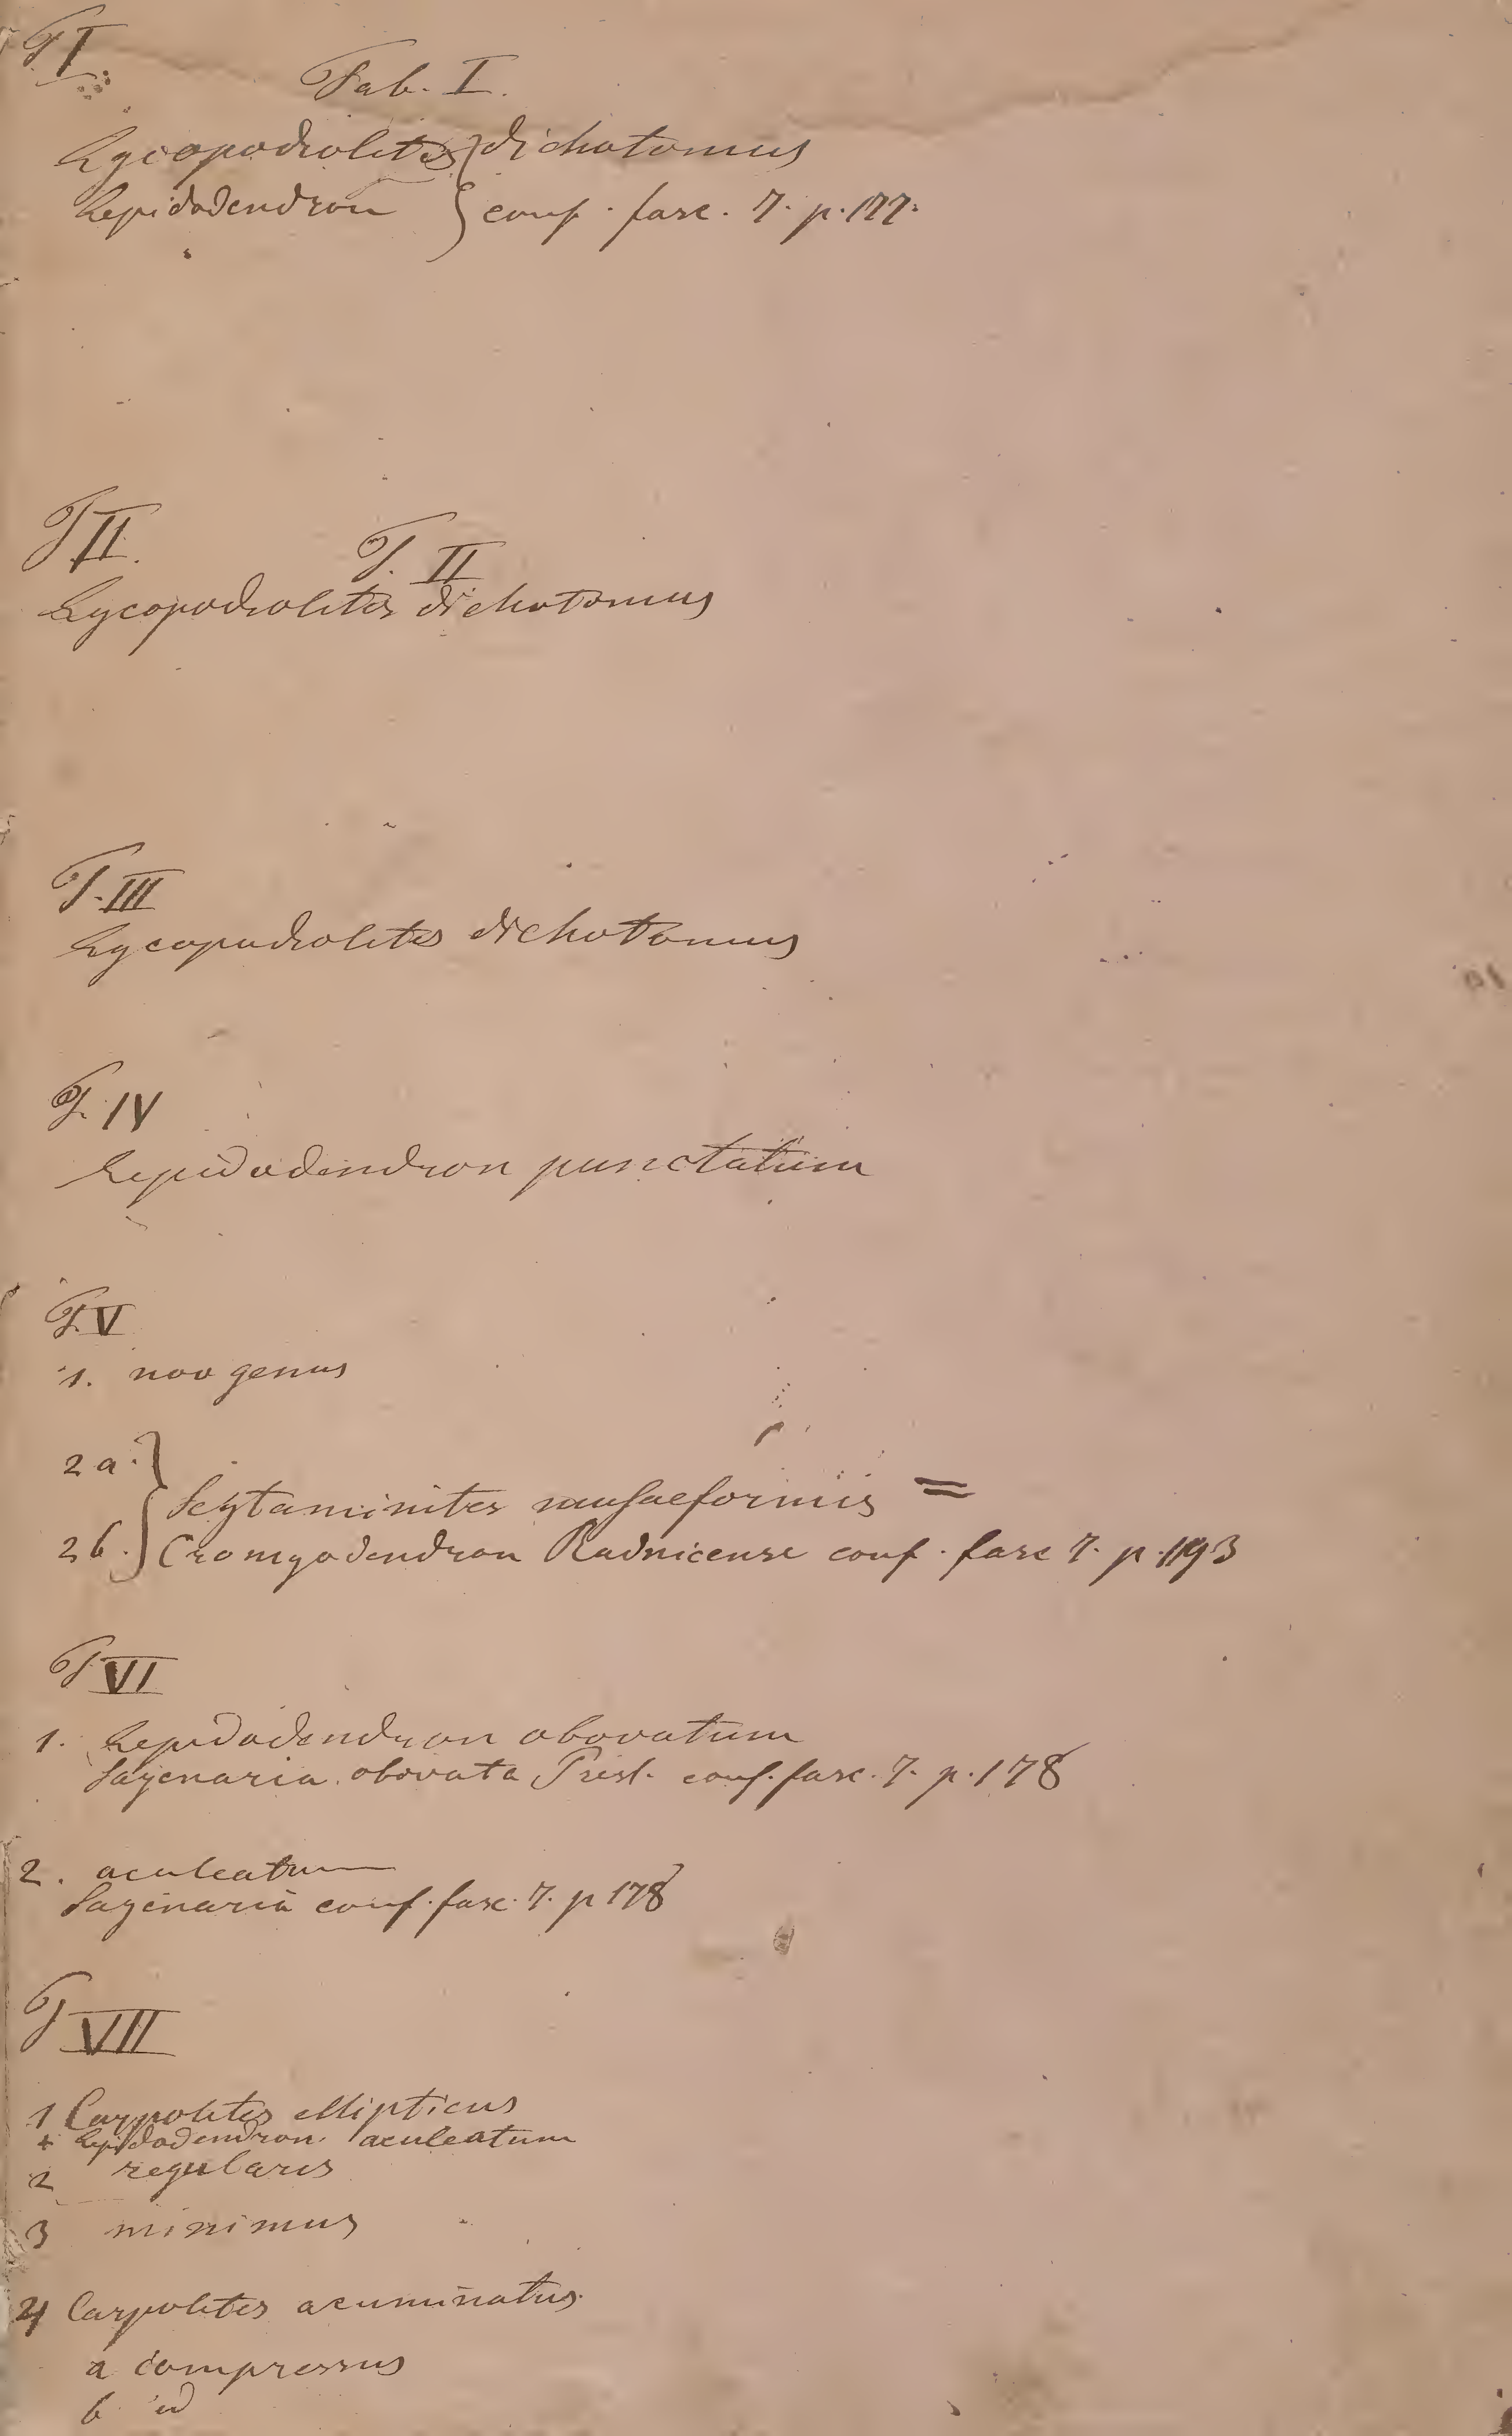 T I.
Tab. I.
Lycopodiolites } dichotomus
Lepidodendron } conf. fasc. 7. p. 177.
T II.
T. II
Lycopodiolites dichotomus
T. III
Lycopodiolites dichotomus
T. IV
Lepidodendron punctatum
T. V
1. nov genus
2 a. }
Scytaminites musaeformis =
2 b. } Cromyodendron Radnicense conf. fasc 7. p. 193
T VI
1. Lepidodendron obovatum
Sagenaria obovata Presl. conf. fasc. 7. p. 178
2. aculeatum
Sagenaria conf. fasc. 7. p 178
T VII
1 Carpolites ellipticus
+ Lepidodendron aculeatum
2 regularis
3 minimus
4 Carpolites acuminatus.
a compressus
b id